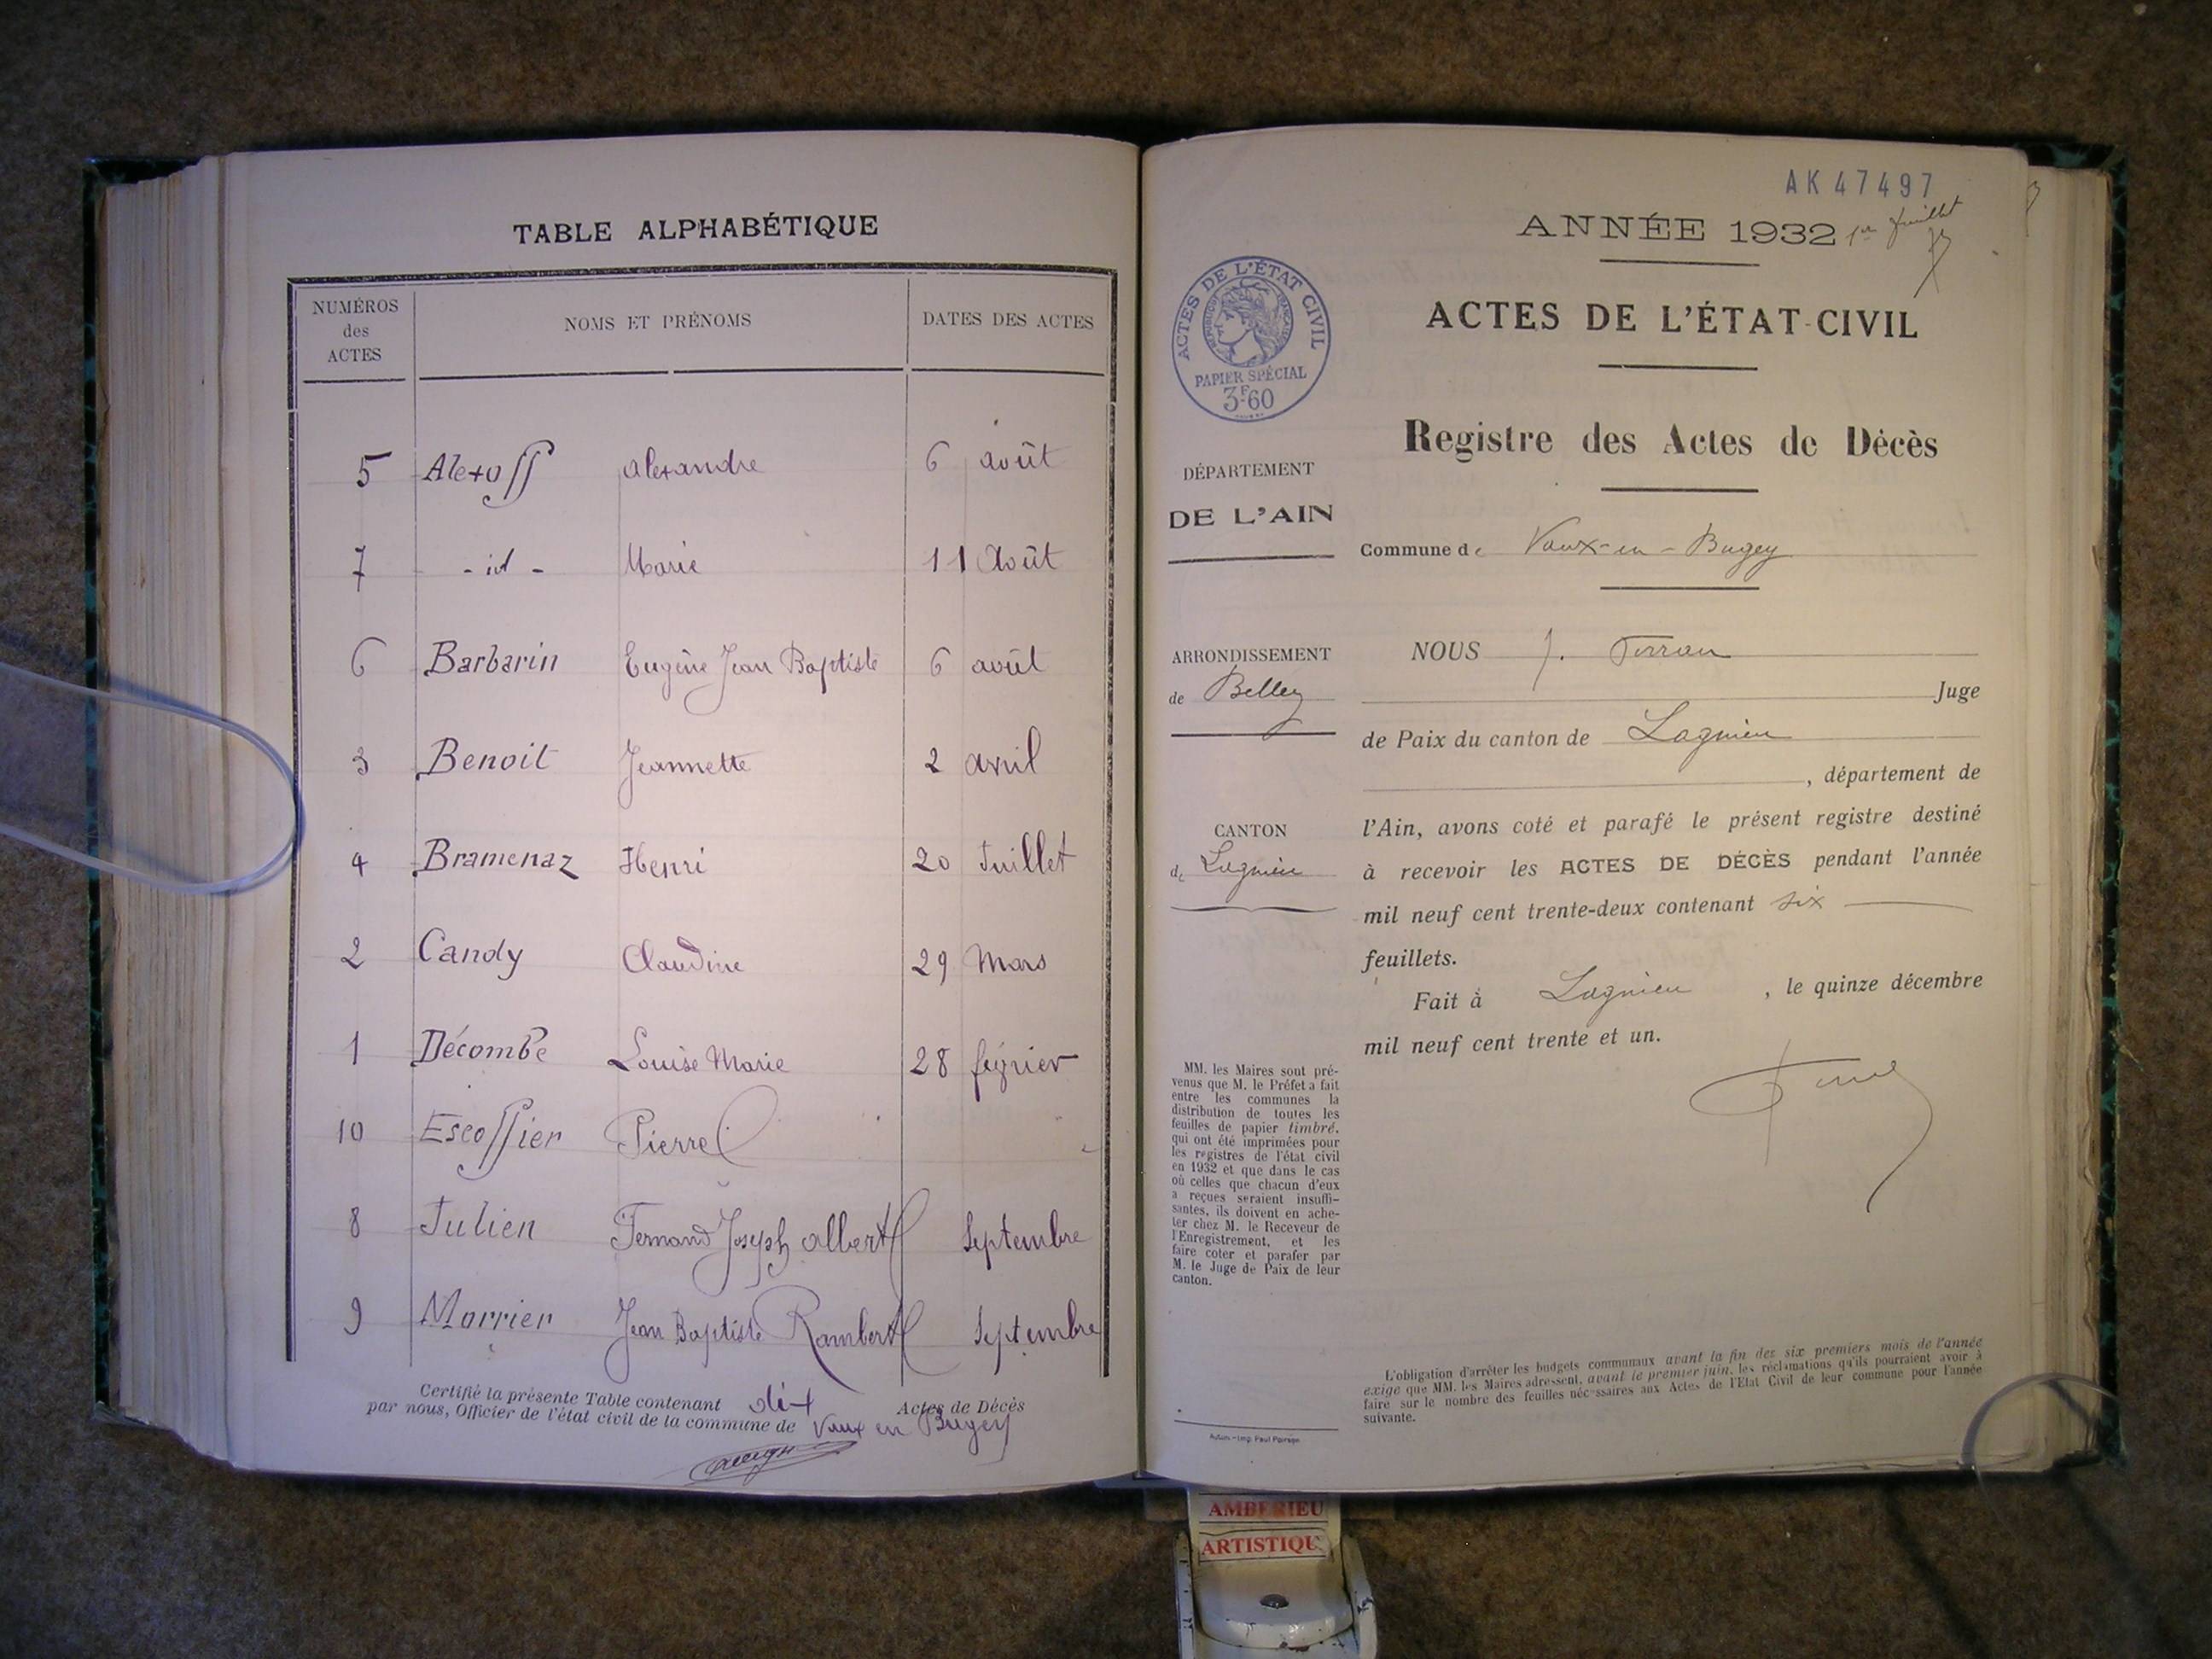 TABLE ALPHABÉTIQUE
NUMÉROS des ACTES NOMS ET PRÉNOMS DATES DES ACTES
5 Alexoff alexandre 6 août
7 - id - Marie 11 Août
6 Barbarin Eugène Jean Baptiste 6 août
3 Benoit Jeannette 2 avril
4 Bramenaz Henri 20 Juillet
2 Candy Claudine 29 Mars
1 Décombe Louise Marie 28 février
10 Escoffier Pierre
8 Julien Fernand Joseph albert Septembre
9 Morrier Jean Baptiste Rambert Septembre
Certifié la présente Table contenant dix Actes de Décès
par nous, Officier de l'état civil de la commune de Vaux en Bugey
AK 47497
ANNÉE 1932 1er feuillet
ACTES DE L'ÉTAT CIVIL
RÉPUBLIQUE FRANÇAISE
PAPIER SPÉCIAL
3F60
ACTES DE L'ÉTAT-CIVIL
Registre des Actes de Décès
DÉPARTEMENT
DE L'AIN
Commune de Vaux-en-Bugey
ARRONDISSEMENT
de Belley
CANTON
de Lagnieu
NOUS J.
Juge
de Paix du canton de Lagnieu
, département de
l'Ain, avons coté et parafé le présent registre destiné
à recevoir les ACTES DE DÉCÈS pendant l'année
mil neuf cent trente-deux contenant six
feuillets.
Fait à Lagnieu, le quinze décembre
mil neuf cent trente et un.
MM. les Maires sont pré-
venus que M. le Préfet a fait
entre les communes la
distribution de toutes les
feuilles de papier timbré,
qui ont été imprimées pour
les registres de l'état civil
en 1932 et que dans le cas
où celles que chacun d'eux
a reçues seraient insuffi-
santes, ils doivent en ache-
ter chez M. le Receveur de
l'Enregistrement, et les
faire coter et parafer par
M. le Juge de Paix de leur
canton.
L'obligation d'arrêter les budgets communaux avant la fin des six premiers mois de l'année
exige que MM. les Maires adressent, avant le premier juin, les réclamations qu'ils pourraient avoir à
faire sur le nombre des feuilles nécessaires aux Actes de l'Etat Civil de leur commune pour l'année
suivante.
Autun. - Imp. Paul Poirson
AMBERIEU
ARTISTIQU